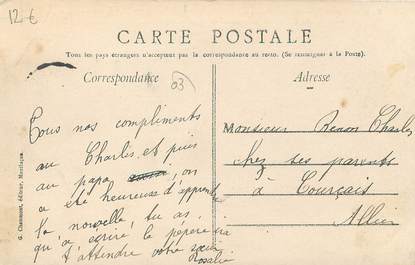 12.€
CARTE POSTALE
Tous les pays étrangers n'acceptent pas la correspondance au recto. (Se renseigner à la Poste).
Correspondance
Adresse
03
Tous nos compliments
au Charles, et puis
au papa on
a été heureuse d'apprendre
la nouvelle, tu as
qu'a ecrire le pepere
t'attendre votre sœur
Rosalie
Monsieur Renon Charles
chez ses parents
à Courçais
Allier
G. Chaumont, éditeur, Montluçon